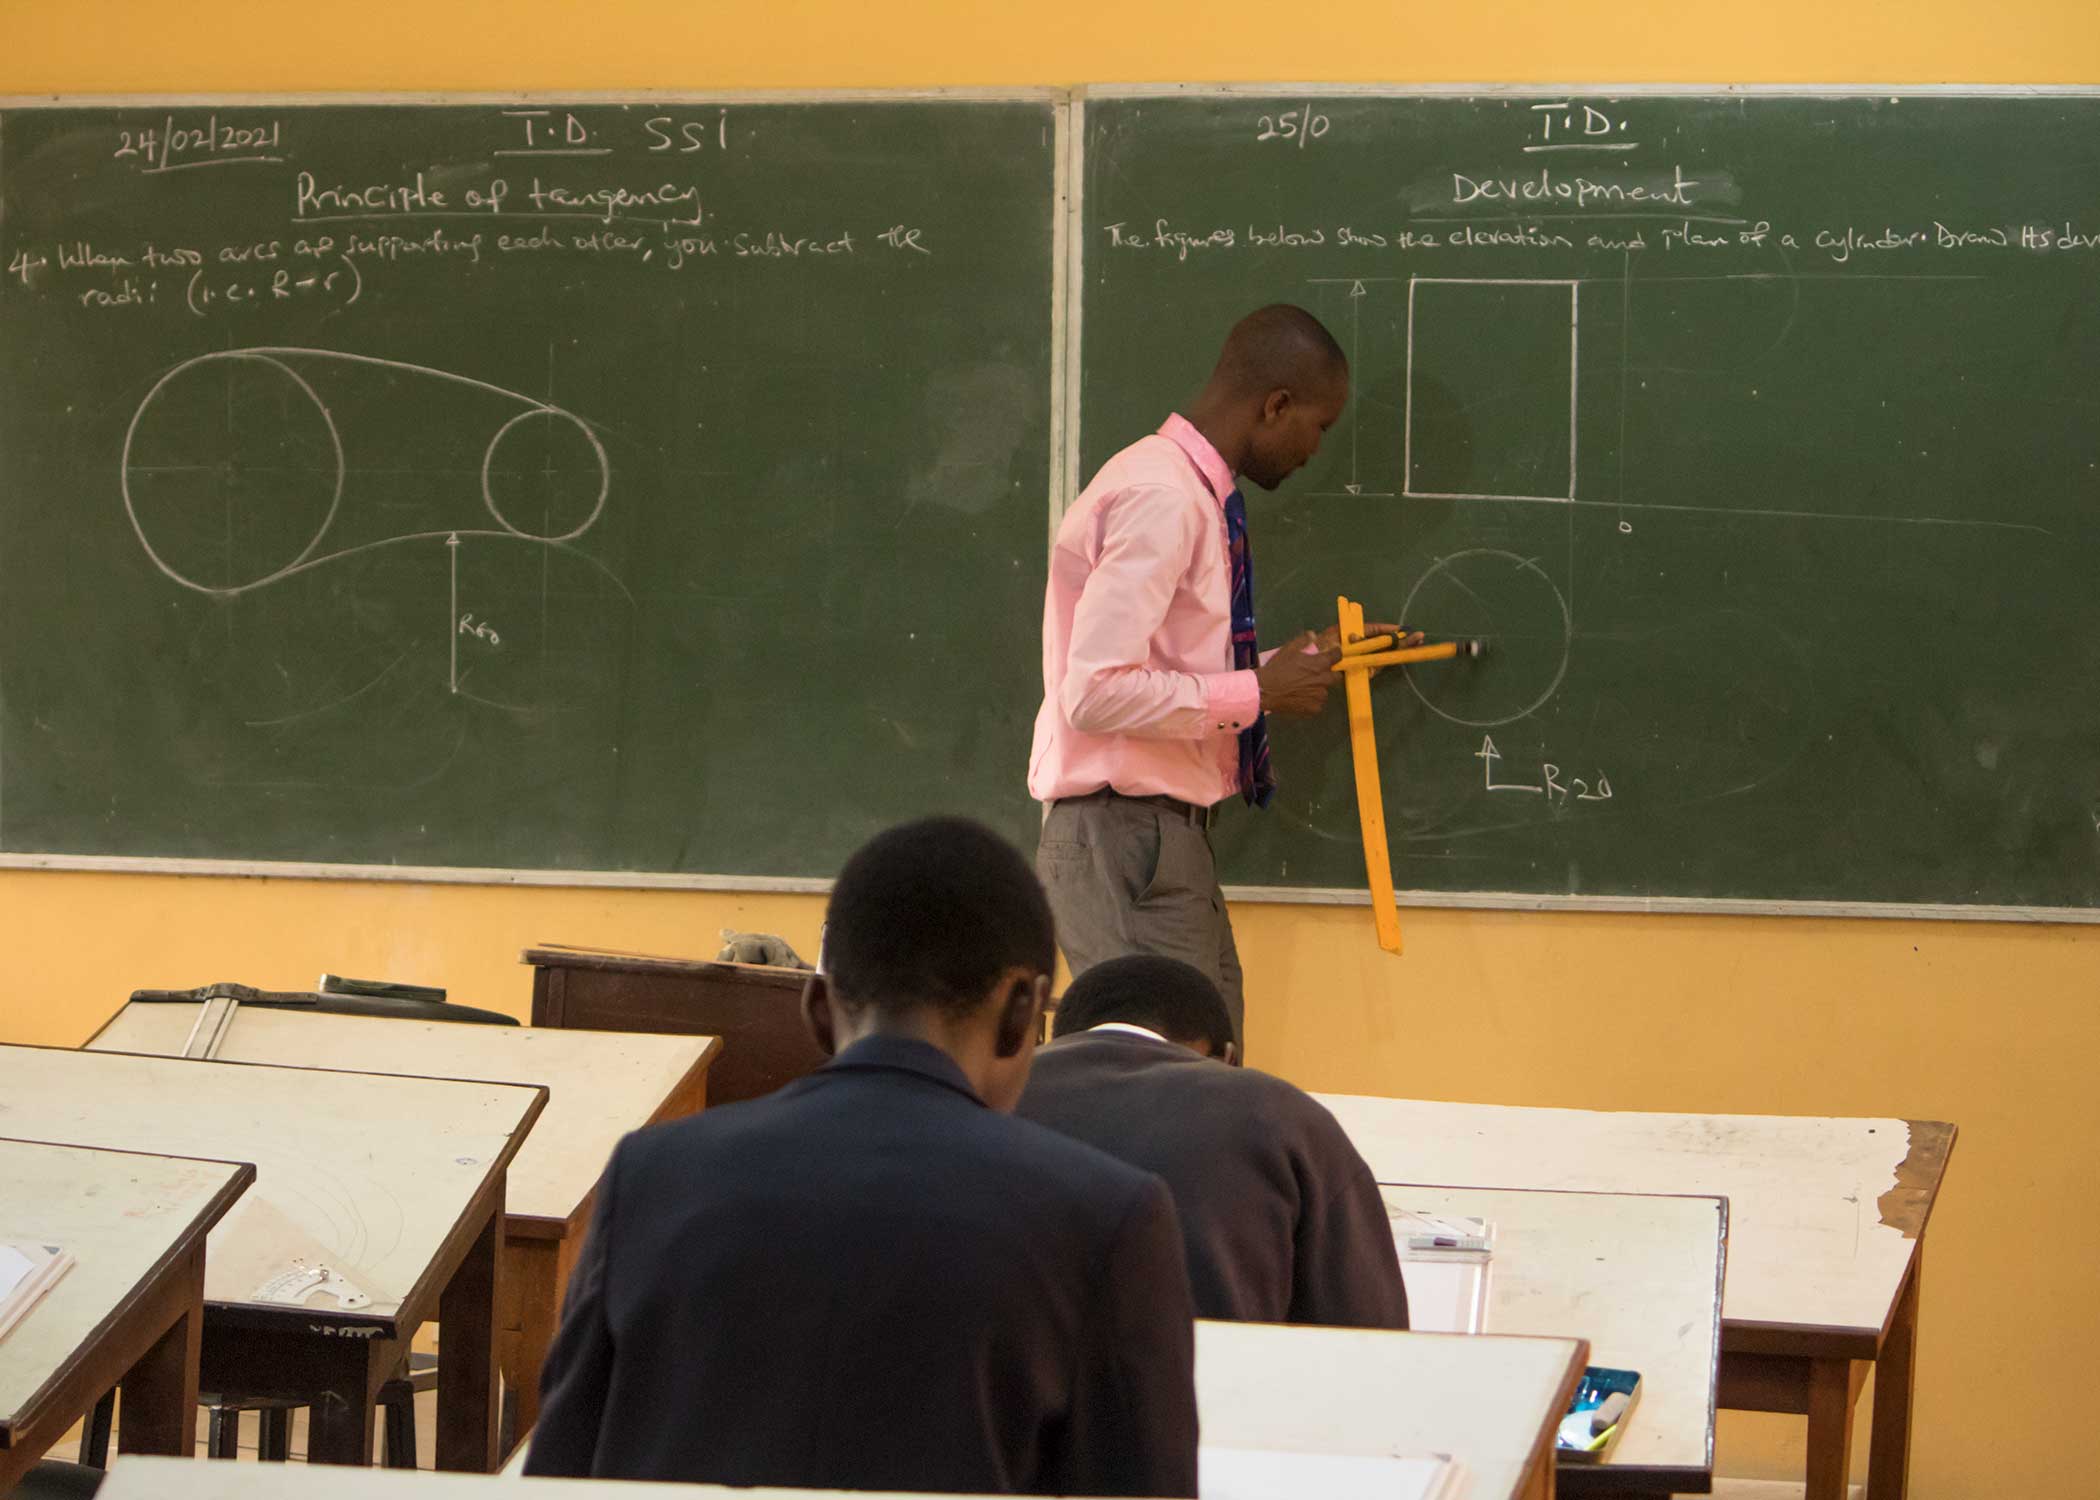 24/02/2021
T.D. SS1
Principle of tangency.
4. When two arcs are supporting each other, you subtract the
radii (i.e. R-r)
R60
25/0
T.D.
Development
The figures below show the elevation and plan of a cylinder. Draw its dev
0
R20